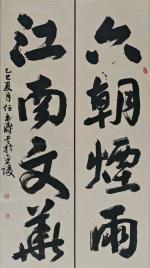 六朝煙雨
江南文華
乙巳夏月任